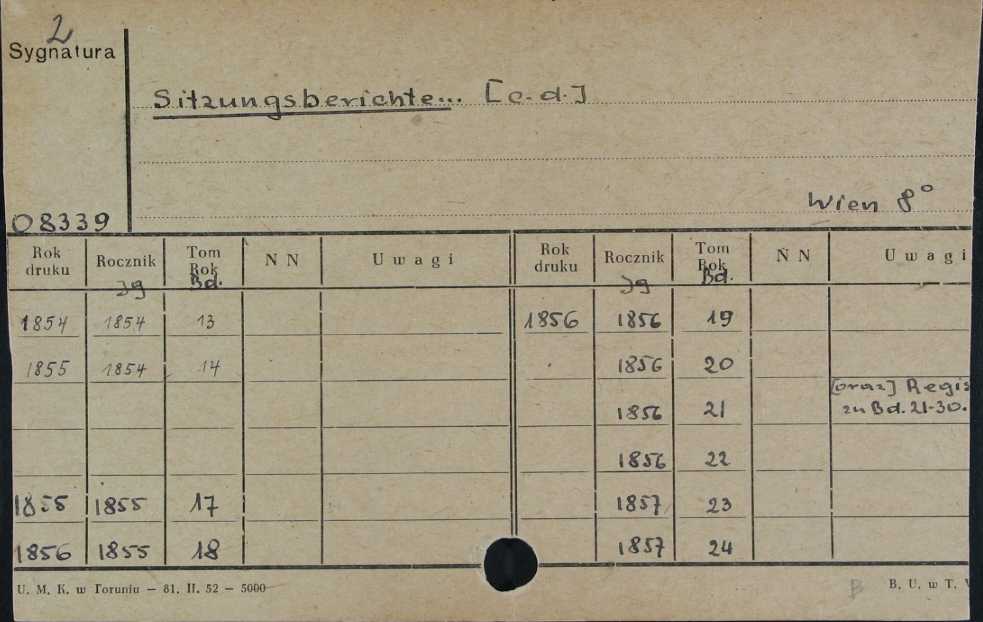 2
Sygnatura
Sitzungsberichte... [c.d.]
Wien 8°
08339
Rok druku Rocznik Tom Rok N N Uwagi Rok druku Rocznik Tom Rok N N Uwagi
Jg Bd. Jg Bd.
1854 1854 13 1856 1856 19
1855 1854 14 1856 20
1856 21 [oraz] Regis
zu Bd. 21-30.
1856 22
1855 1855 17 1857 23
1856 1855 18 1857 24
U. M. K. w Toruniu – 81. II. 52 – 5000
B B. U. w T.